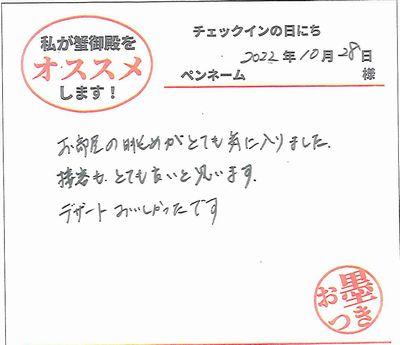 私が蟹御殿を
オススメ
します！
チェックインの日にち
2022年10月28日
ペンネーム 様
お部屋の眺めがとても気に入りました.
接客もとても良いと思います.
デザートおいしかったです
お墨つき